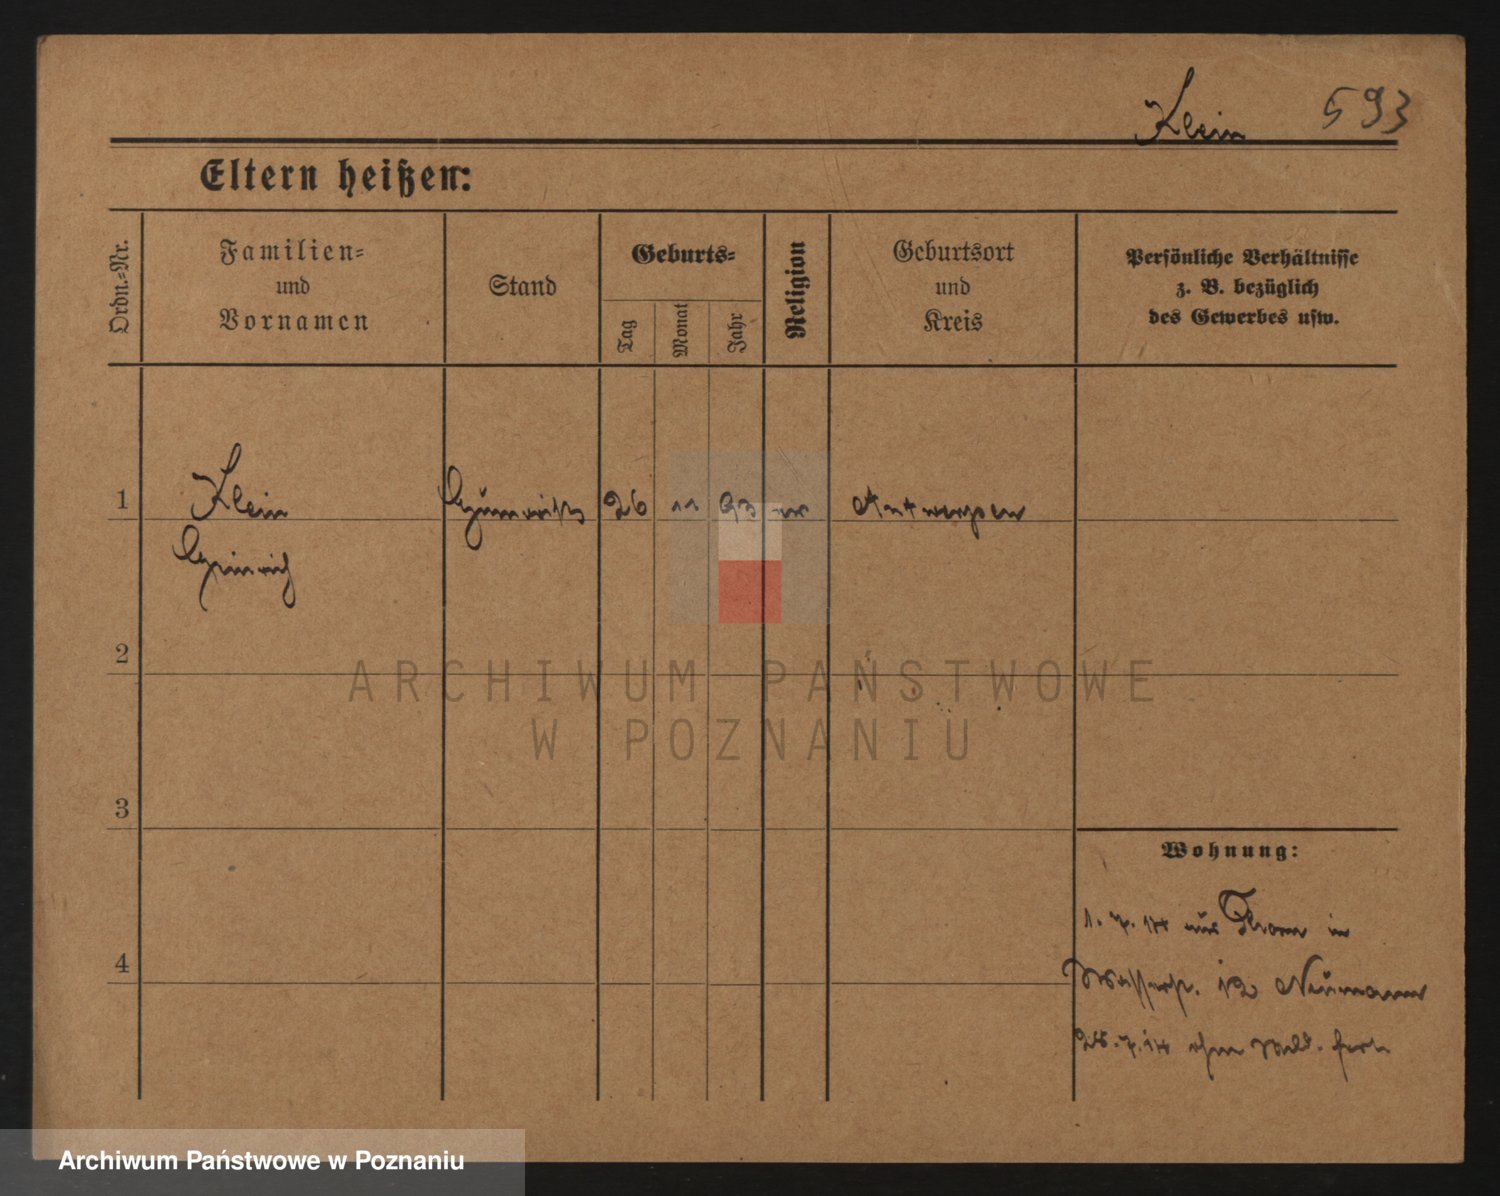 Klein 593
Eltern heißen:
Ordn.-Nr.
Familien-
und
Vornamen
Stand
Geburts-
Tag
Monat
Jahr
Religion
Geburtsort
und
Kreis
Persönliche Verhältnisse
z. B. bezüglich
des Gewerbes usw.
1 Klein 26 11 93 Antwerpen
Heinrich
2
ARCHIWUM PAŃSTWOWE
W POZNANIU
3
Wohnung:
1. 7. 14 aus in
4
12 Neumann
28. 7. 14 ohne Meld. fort
Archiwum Państwowe w Poznaniu